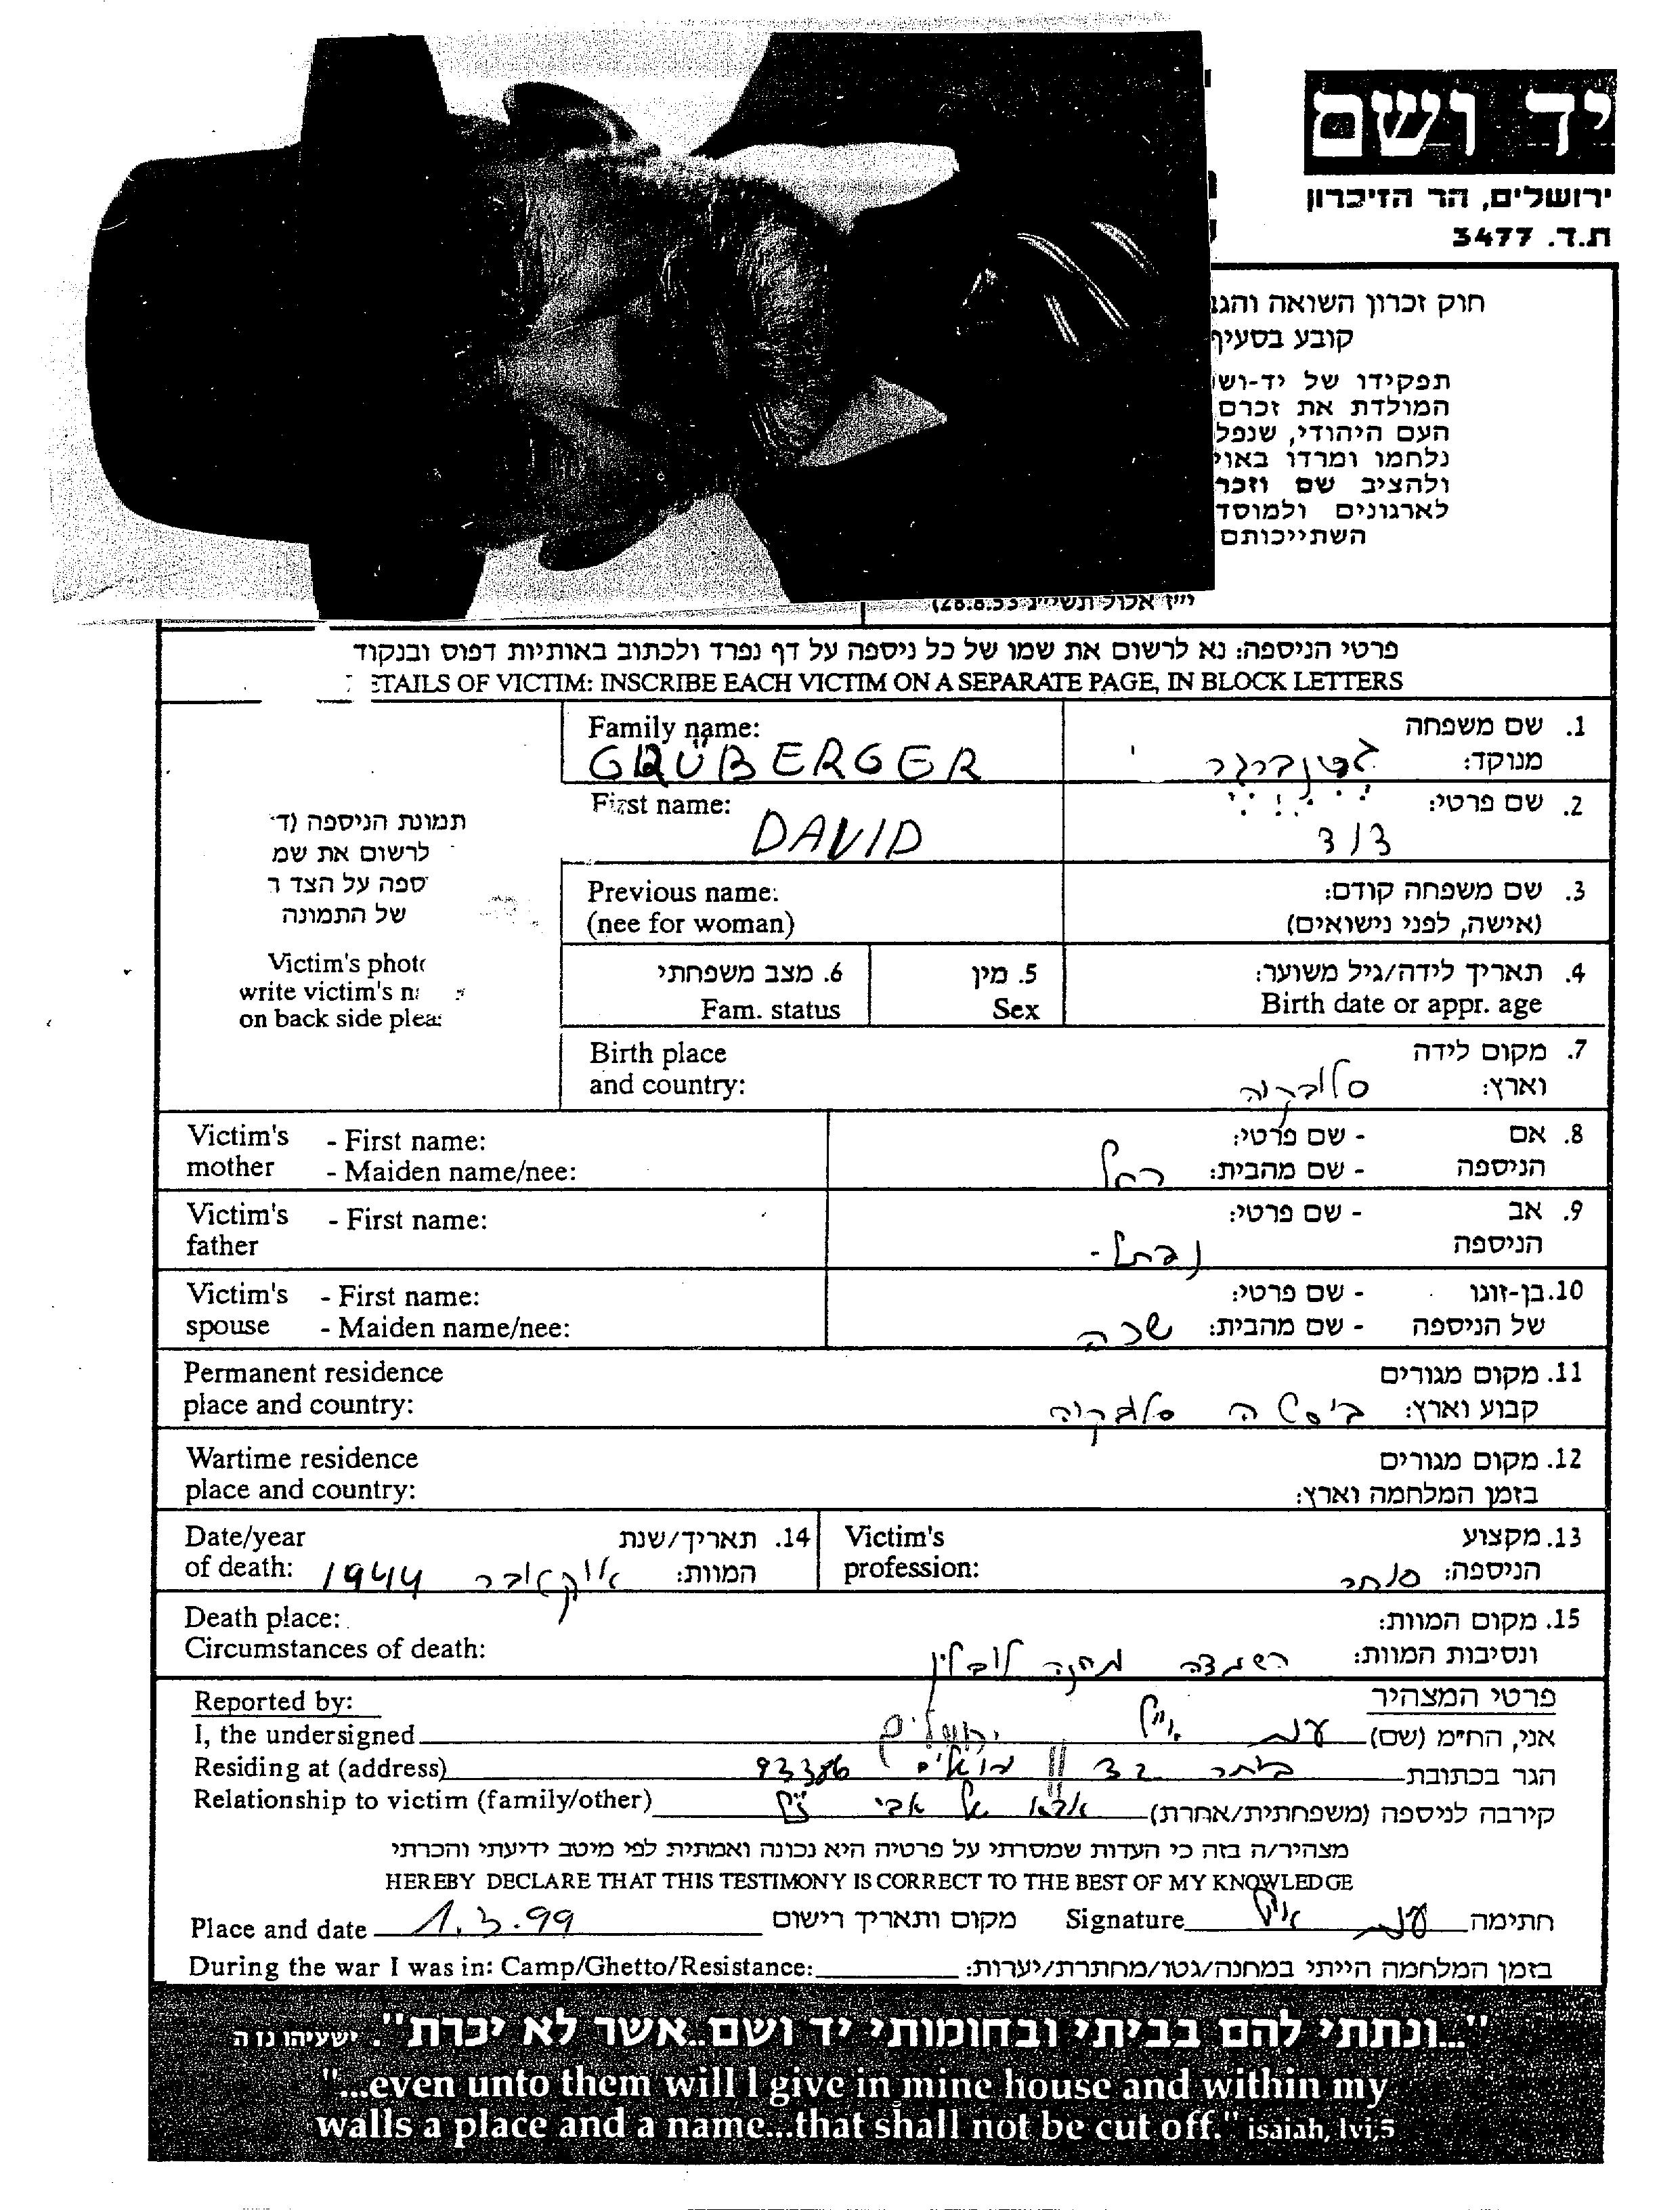 יד ושם
ירושלים, הר הזיכרון
ת.ד. 3477
חוק זכרון השואה והגב
קובע בסעיף
תפקידו של יד-וש
המולדת את זכרם
העם היהודי, שנפל
נלחמו ומרדו באוי
ולהציב שם וזכר
לארגונים ולמוסד
השתייכותם
י״ז אלול תשי״ג 28.8.53)
פרטי הניספה: נא לרשום את שמו של כל ניספה על דף נפרד ולכתוב באותיות דפוס ובנקוד
ETAILS OF VICTIM: INSCRIBE EACH VICTIM ON A SEPARATE PAGE, IN BLOCK LETTERS
תמונת הניספה (ד
לרשום את שמ
ספה על הצד
של התמונה
Victim's phot
write victim's n
on back side plea
1. שם משפחה
מנוקד:
Family name:
GRÜBERGER
2. שם פרטי: דוד
First name: DAVID
3. שם משפחה קודם:
(אישה, לפני נישואים)
Previous name:
(nee for woman)
4. תאריך לידה/גיל משוער:
Birth date or appr. age
5. מין
Sex
6. מצב משפחתי
Fam. status
7. מקום לידה
וארץ: סלובקיה
Birth place
and country:
8. אם - שם פרטי:
הניספה - שם מהבית: רחל
Victim's - First name:
mother - Maiden name/nee:
9. אב - שם פרטי:
הניספה נפתלי
Victim's - First name:
father
10. בן-זוגו - שם פרטי:
של הניספה - שם מהבית: שרה
Victim's - First name:
spouse - Maiden name/nee:
11. מקום מגורים
קבוע וארץ: סלובקיה
Permanent residence
place and country:
12. מקום מגורים
בזמן המלחמה וארץ:
Wartime residence
place and country:
13. מקצוע
הניספה: סוחר
Victim's
profession:
14. תאריך/שנת
המוות: אוקטובר 1944
Date/year
of death:
15. מקום המוות:
ונסיבות המוות: השמדה מחנה לובלין
Death place:
Circumstances of death:
פרטי המצהיר
Reported by:
אני, הח״מ (שם) ענת ירושלים
I, the undersigned
הגר בכתובת ביתר 32 93386
Residing at (address)
קירבה לניספה (משפחתית/אחרת) אבא של אבי ז״ל
Relationship to victim (family/other)
מצהיר/ה בזה כי העדות שמסרתי על פרטיה היא נכונה ואמתית לפי מיטב ידיעתי והכרתי
HEREBY DECLARE THAT THIS TESTIMONY IS CORRECT TO THE BEST OF MY KNOWLEDGE
Place and date 1.3.99 מקום ותאריך רישום Signature ענת חתימה
During the war I was in: Camp/Ghetto/Resistance: בזמן המלחמה הייתי במחנה/גטו/מחתרת/יערות:
"...ונתתי להם בביתי ובחומותי יד ושם..אשר לא יכרת". ישעיהו נו ה
"...even unto them will I give in mine house and within my
walls a place and a name...that shall not be cut off." isaiah, lvi,5